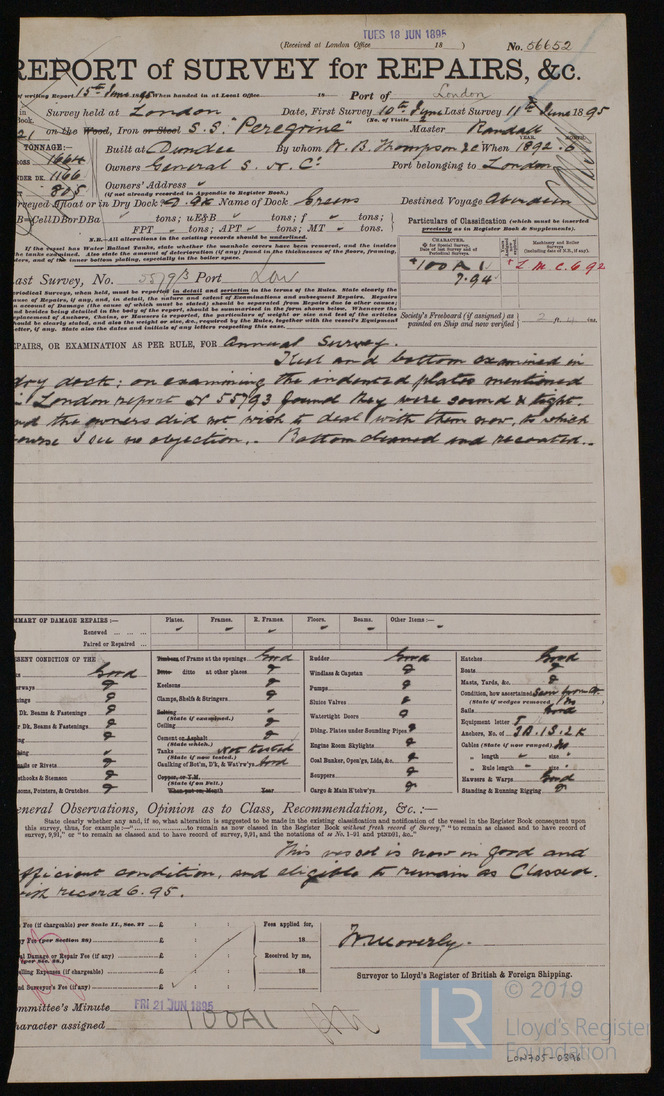 TUES 18 JUN 1895
(Received at London Office 18 )
No. 56652
REPORT of SURVEY for REPAIRS, &c.
of writing Report 15th June 1895 When handed in at Local Office 18 Port of London
in Survey held at London Date, First Survey 10th June Last Survey 11th June 1895
Book. (No. of Visits 2)
21 on the Wood, Iron or Steel S.S. "Peregrine" Master Randall
TONNAGE:— YEAR. MONTH.
GROSS 1664 Built at Dundee By whom W. B. Thompson & Co When 1892 . 6
UNDER DK. 1166 Owners General S. N. Co Port belonging to London
805 Owners' Address
(if not already recorded in Appendix to Register Book.)
Surveyed Afloat or in Dry Dock D. Dk Name of Dock Greens Destined Voyage Aberdeen
B=CellDBorDBa " tons; uE&B " tons; f " tons;
FPT " tons; APT " tons; MT " tons.
Particulars of Classification (which must be inserted precisely as in Register Book & Supplements).
N.B.—All alterations in the existing records should be underlined.
If the vessel has Water Ballast Tanks, state whether the manhole covers have been removed, and the insides
the tanks examined. Also state the amount of deterioration (if any) found in the thicknesses of the floors, framing,
ders, and of the inner bottom plating, especially in the boiler space.
CHARACTER.
for Special Survey.
Date of last Survey and of Periodical Surveys.
Machinery and Boiler Surveys
(including date of N.B., if any).
*100 A 1 * L.M.C. 6 92
7.94
Last Survey, No. 55793 Port Lon
Periodical Surveys, when held, must be reported in detail and seriatim in the terms of the Rules. State clearly the
cause of Repairs, if any, and, in detail, the nature and extent of Examinations and subsequent Repairs. Repairs
on account of Damage (the cause of which must be stated) should be separated from Repairs due to other causes;
and besides being detailed in the body of the report, should be summarised in the form shown below. Whenever the
replacement of Anchors, Chains, or Hawsers is reported, the particulars of weight or size and test of the articles
should be clearly stated, and also the weight or size, &c., required by the Rules, together with the vessel's Equipment
Letter, if any. State also the dates and initials of any letters respecting this case.
Society's Freeboard (if assigned) as painted on Ship and now verified 2 ft. 4 ins.
REPAIRS, OR EXAMINATION AS PER RULE, FOR Annual Survey.
Keel and bottom examined in
dry dock; on examining the indented plates mentioned
in London report No 55793 found they were sound & tight.
and the owners did not wish to deal with them now, to which
course I see no objection. Bottom cleaned and recoated.
SUMMARY OF DAMAGE REPAIRS:— Plates. Frames. R. Frames. Floors. Beams. Other Items:—
Renewed ... ... ... " " " " " "
Faired or Repaired ...
PRESENT CONDITION OF THE
Good
Dk. Beams & Fastenings
Dk. Beams & Fastenings
Breasthooks & Stemson
Transoms, Pointers, & Crutches
Timbers of Frame at the openings Good
Ditto ditto at other places
Keelsons
Clamps, Shelfs & Stringers
Salting
(State if examined.)
Ceiling
Cement or Asphalt
(State which.)
Tanks Not tested
(State if now tested.)
Caulking of Bot'm, Dk, & Wat'rw'ys Good
Copper, or Y.M.
(State if on Felt.)
When put on Month Year
Rudder Good
Windlass & Capstan
Pumps
Sluice Valves
Watertight Doors
Dblng. Plates under Sounding Pipes
Engine Room Skylights
Coal Bunker, Open'gs, Lids, &c.
Scuppers
Cargo & Main H'tchw'ys
Hatches Good
Boats
Masts, Yards, &c.
Condition, how ascertained
(State if wedges removed) No
Sails Good
Equipment letter
Anchors, No. of 3B. 1S. 2K
Cables (State if now ranged) No
" length " size
" Rule length " size
Hawsers & Warps Good
Standing & Running Rigging
General Observations, Opinion as to Class, Recommendation, &c.:—
State clearly whether any and, if so, what alteration is suggested to be made in the existing classification and notification of the vessel in the Register Book consequent upon
this survey, thus, for example:—"to remain as now classed in the Register Book without fresh record of Survey," "to remain as classed and to have record of
survey, 9,91," or "to remain as classed and to have record of survey, 9,91, and the notations of ss No. 1-91 and ptND91, &c."
This vessel is now in good and
efficient condition, and eligible to remain as Classed.
with record 6.95.
Fee (if chargeable) per Scale II., Sec. 27 £ : : Fees applied for,
Fee (per Section 28) £ : : 18
Damage or Repair Fee (if any) £ : : Received by me,
(per Sec. 28.)
Travelling Expenses (if chargeable) £ : : 18
2nd Surveyor's Fee (if any) £ : :
W. Moverly.
Surveyor to Lloyd's Register of British & Foreign Shipping.
Committee's Minute FRI 21 JUN 1895
Character assigned 100A1
LR
© 2019
Lloyd's Register
Foundation
LON705-0396